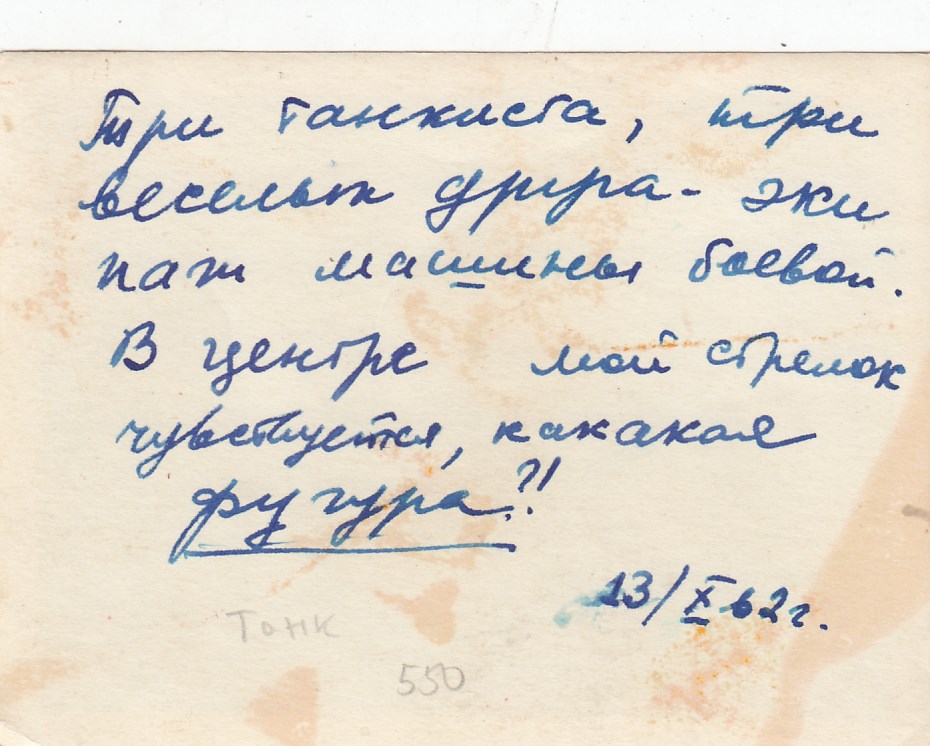 Три танкиста, три
веселых друга - эки
паж машины боевой.
В центре мой стрелок
чувствуется, какакая
фугура?!
13/X 62г.
Танк
550